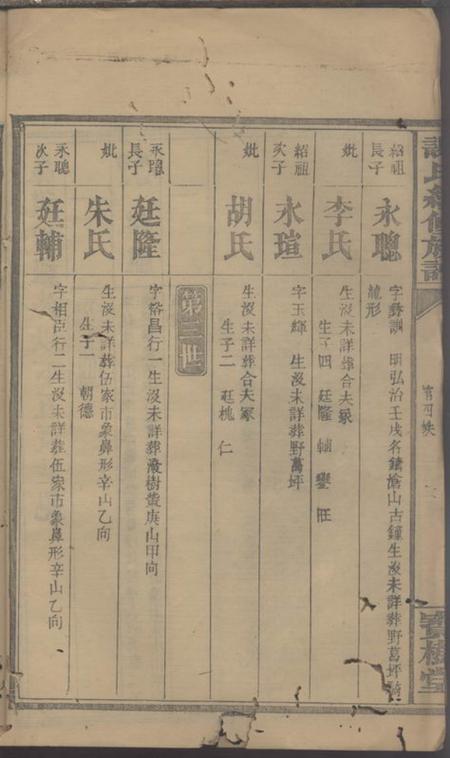 氏續修族譜
寶樹堂
紹祖長子 永聰 字彝訓 明弘治壬戌名鑄滄山古鐘生沒未詳葬野葛坪騎
龍形
妣 李氏 生沒未詳葬合夫冢
生子四 廷隆 輔 鑾 旺
紹祖次子 永瑄 字玉輝 生沒未詳葬野葛坪
妣 胡氏 生沒未詳葬合夫冢
生子二 廷槐 仁
第三世
永聰長子 廷隆 字裕昌行一生沒未詳葬樹黃庚山甲向
妣 朱氏 生沒未詳葬伍家市象鼻形辛山乙向
生子一 朝德
永聰次子 廷輔 字相臣行二生沒未詳葬伍家市象鼻形辛山乙向